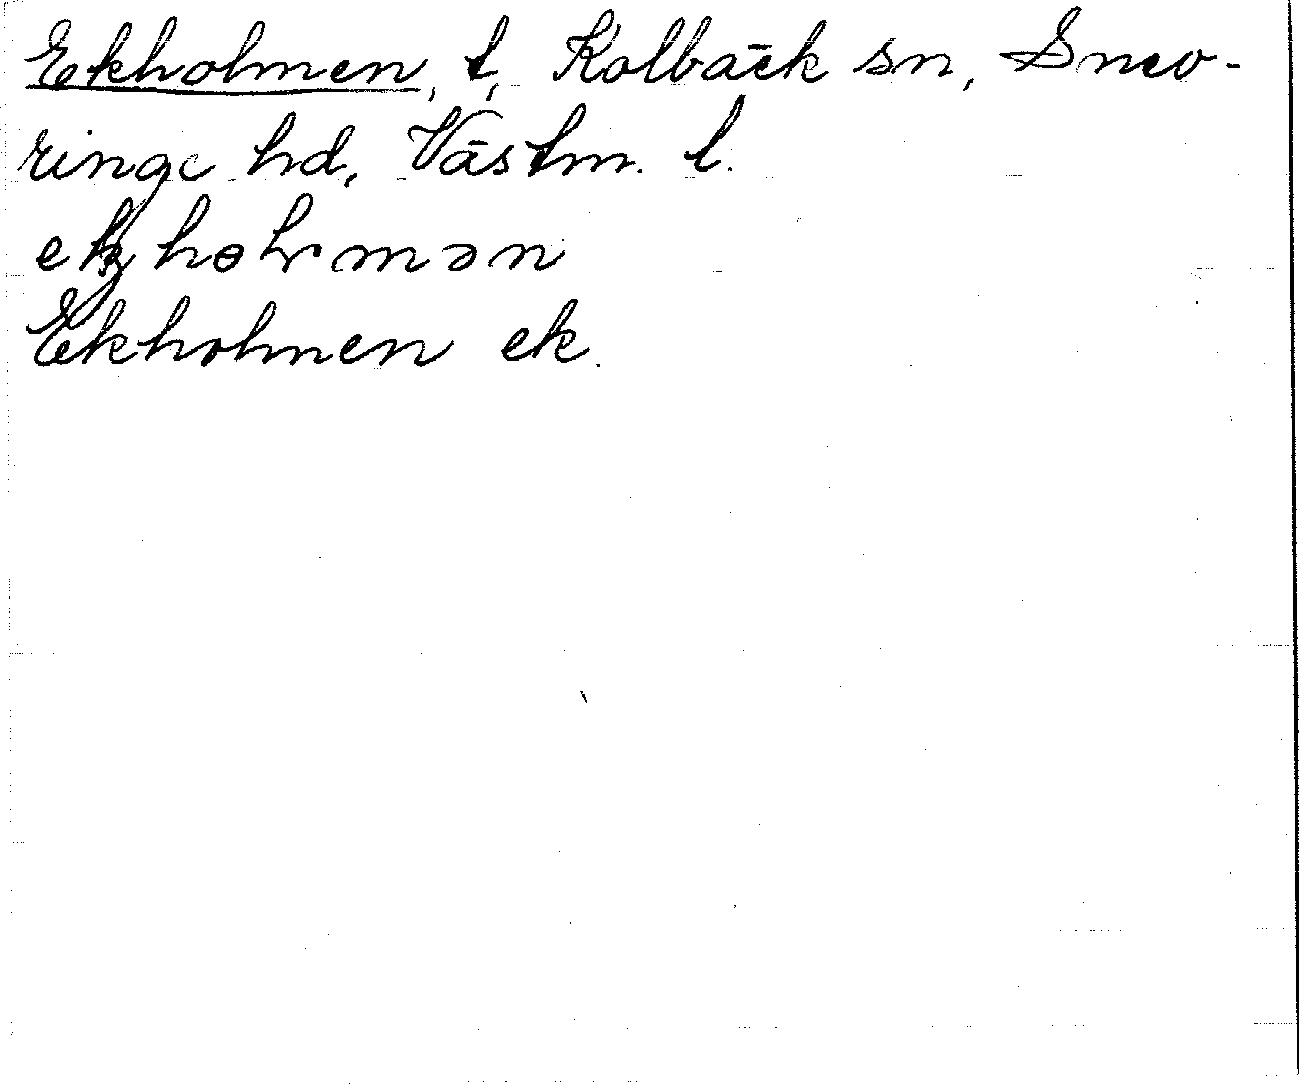 Ekholmen, t, Kolbäck sn, Snev-
ringe hd, Västm. l.
Ekholmen ek.